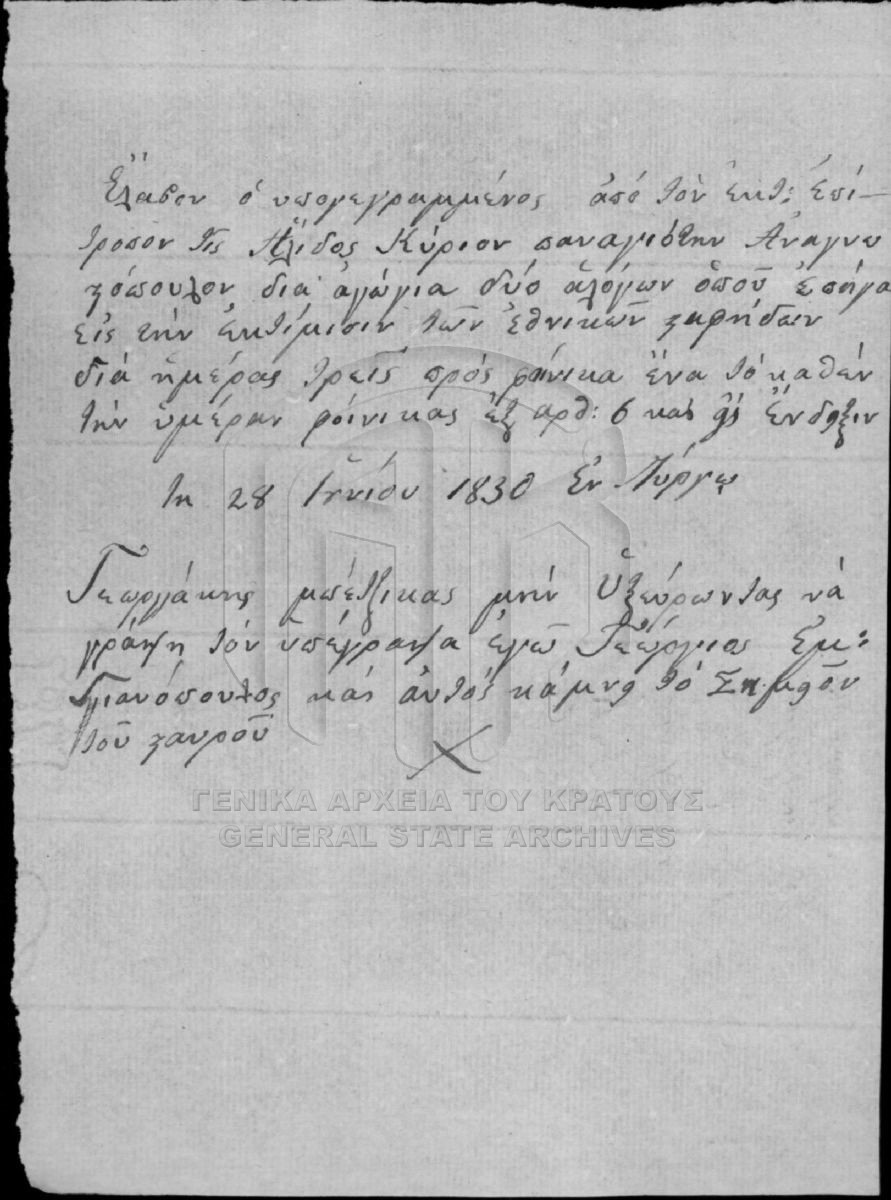 Ἔλαβον ὁ υπογεγραμμένος ἀπό τόν ἐκτ: Ἐπί-
τροπον τῆς Ἤλιδος Κύριον παναγιότην Ἀναγνω
στόπουλον διά ἀγώγια δύο ἀλόγων ὁποῦ ἐπῆγα
εἰς τήν ἐκτίμισιν τῶν ἐθνικῶν σταφήδων
διά ἡμέρας τρεῖς πρός φοίνικα ἕνα τό καθέν
τήν ὑμέραν φοίνικας ἕξ αρθ: 6 καί εἰς ἔνδηξιν
τη 28 Ἰουνίου 1830 Ἐν Πύργῳ
Γεωργάκης μπέτζικας μήν ἠξεύρωντας νά
γράψη τόν ὑπέγραψα ἐγῶ Γεώργιος Ἐμ:
Γιανόπουλος καί ἀυτός κάμνη τό Σημῆον
τοῦ σταυροῦ
Χ
ΓΕΝΙΚΑ ΑΡΧΕΙΑ ΤΟΥ ΚΡΑΤΟΥΣ
GENERAL STATE ARCHIVES